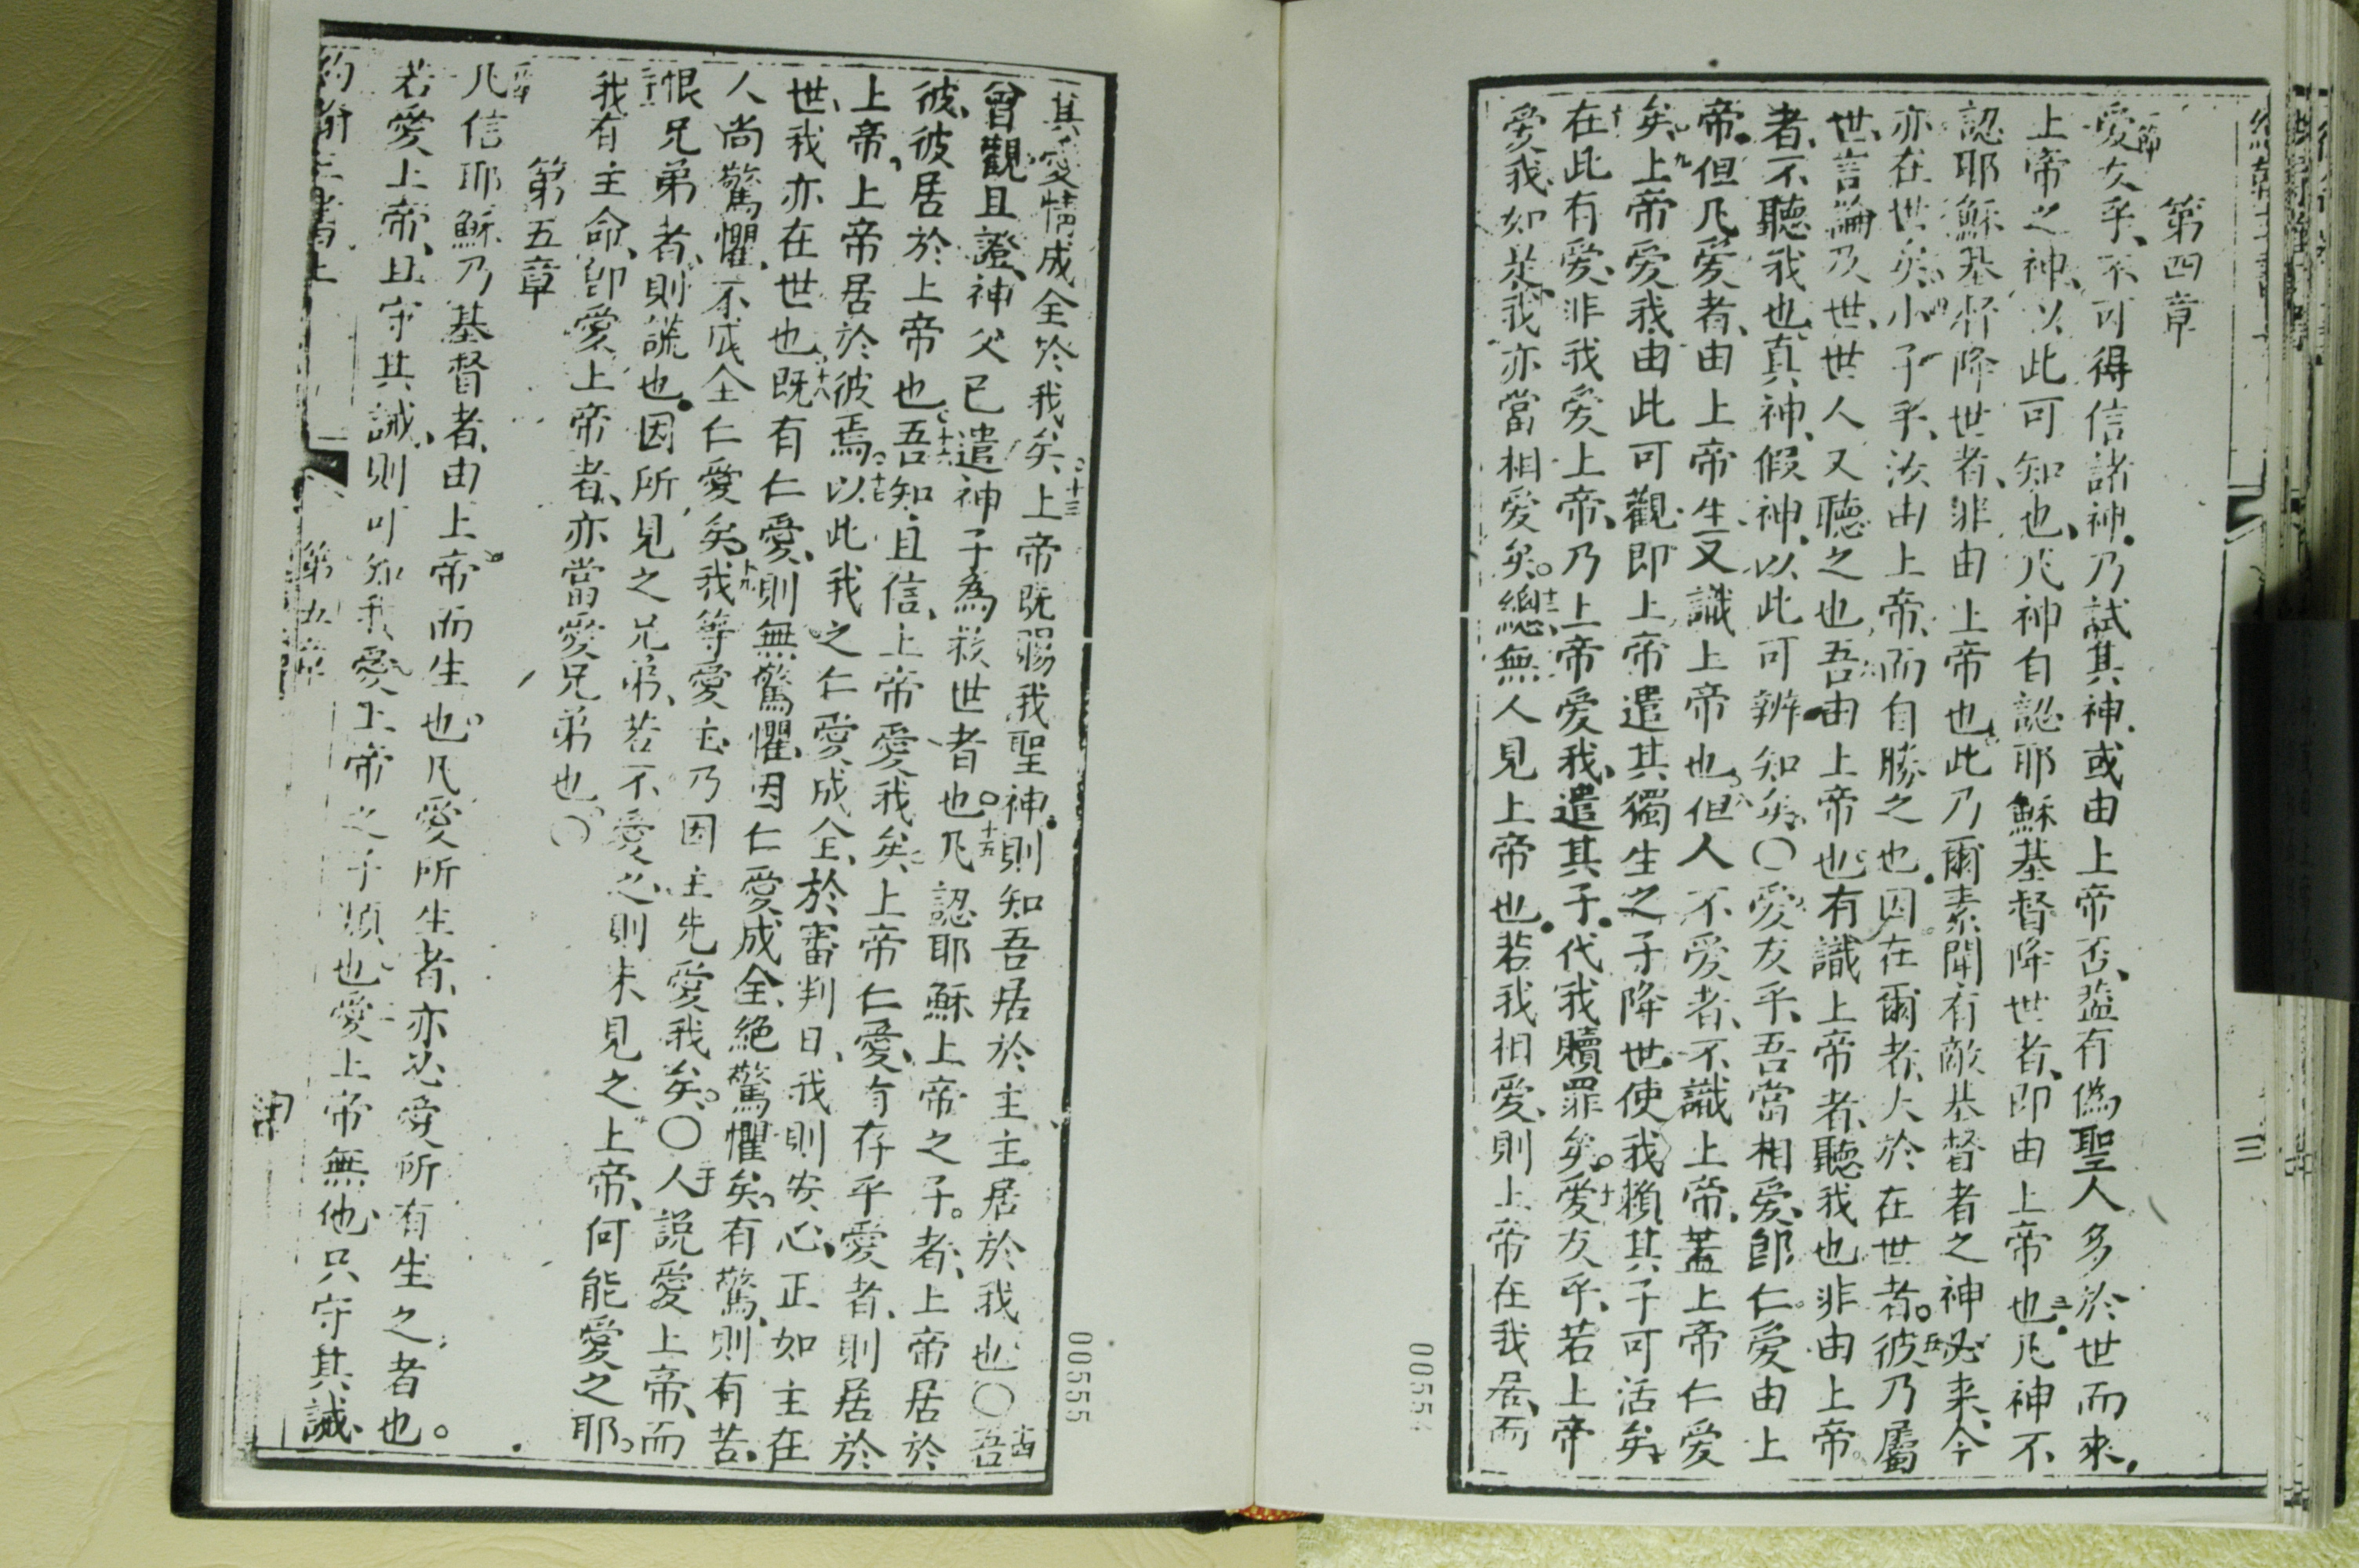 第四章
愛友乎、不可得信諸神、乃試其神、或由上帝否、蓋有偽聖人多於世而來、
上帝之神、以此可知也、凡神自認耶穌基督降世者、即由上帝也、凡神不
認耶穌基督降世者、非由上帝也、此乃爾素聞有敵基督者之神必来、今
亦在世矣、小子乎、汝由上帝、而自勝之也、因在爾者、大於在世者。彼乃屬
世、言論及世、世人又聽之也、吾由上帝也、有識上帝者、聽我也、非由上帝
者、不聽我也、真神、假神、以此可辨知矣、〇愛友乎、吾當相愛、即仁愛由上
帝、但凡愛者、由上帝生、又識上帝也、但人不愛者、不識上帝、蓋上帝仁愛
矣、九上帝愛我、由此可觀、即上帝遣其獨生之子降世、使我賴其子可活矣、
十在此有愛、非我愛上帝、乃上帝愛我、遣其子、代我贖罪矣。十愛友乎、若上帝
愛我、如是、我亦當相愛矣。十二總無人見上帝也、若我相愛、則上帝在我居、而
三
00554
其愛情成全於我矣、十三上帝既賜我聖神、則知吾居於主、主居於我也〇十四吾
曾觀且證、神父已遣神子為救世者也。十五凡認耶穌上帝之子。者、上帝居於
彼、彼居於上帝也。十六吾知且信、上帝愛我矣、上帝仁愛、有存乎愛者、則居於
上帝、上帝居於彼焉。十七以此我之仁愛成全、於審判日、我則安心、正如主在
世、我亦在世也、十八既有仁愛、則無驚懼、因仁愛成全、絕驚懼矣、有驚、則有苦、
人尚驚懼、不成全仁愛矣、十九我等愛主、乃因主先愛我矣。〇二十人說愛上帝、而
恨兄弟者、則謊也、因所見之兄弟、若不愛之、則未見之上帝、何能愛之耶。
我有主命、即愛上帝者、亦當愛兄弟也〇
第五章
凡信耶穌乃基督者、由上帝而生也、凡愛所生者、亦必愛所有生之者也。
若愛上帝、且守其誡、則可知我愛上帝之子類也、愛上帝無他、只守其誡、
第五章
00555